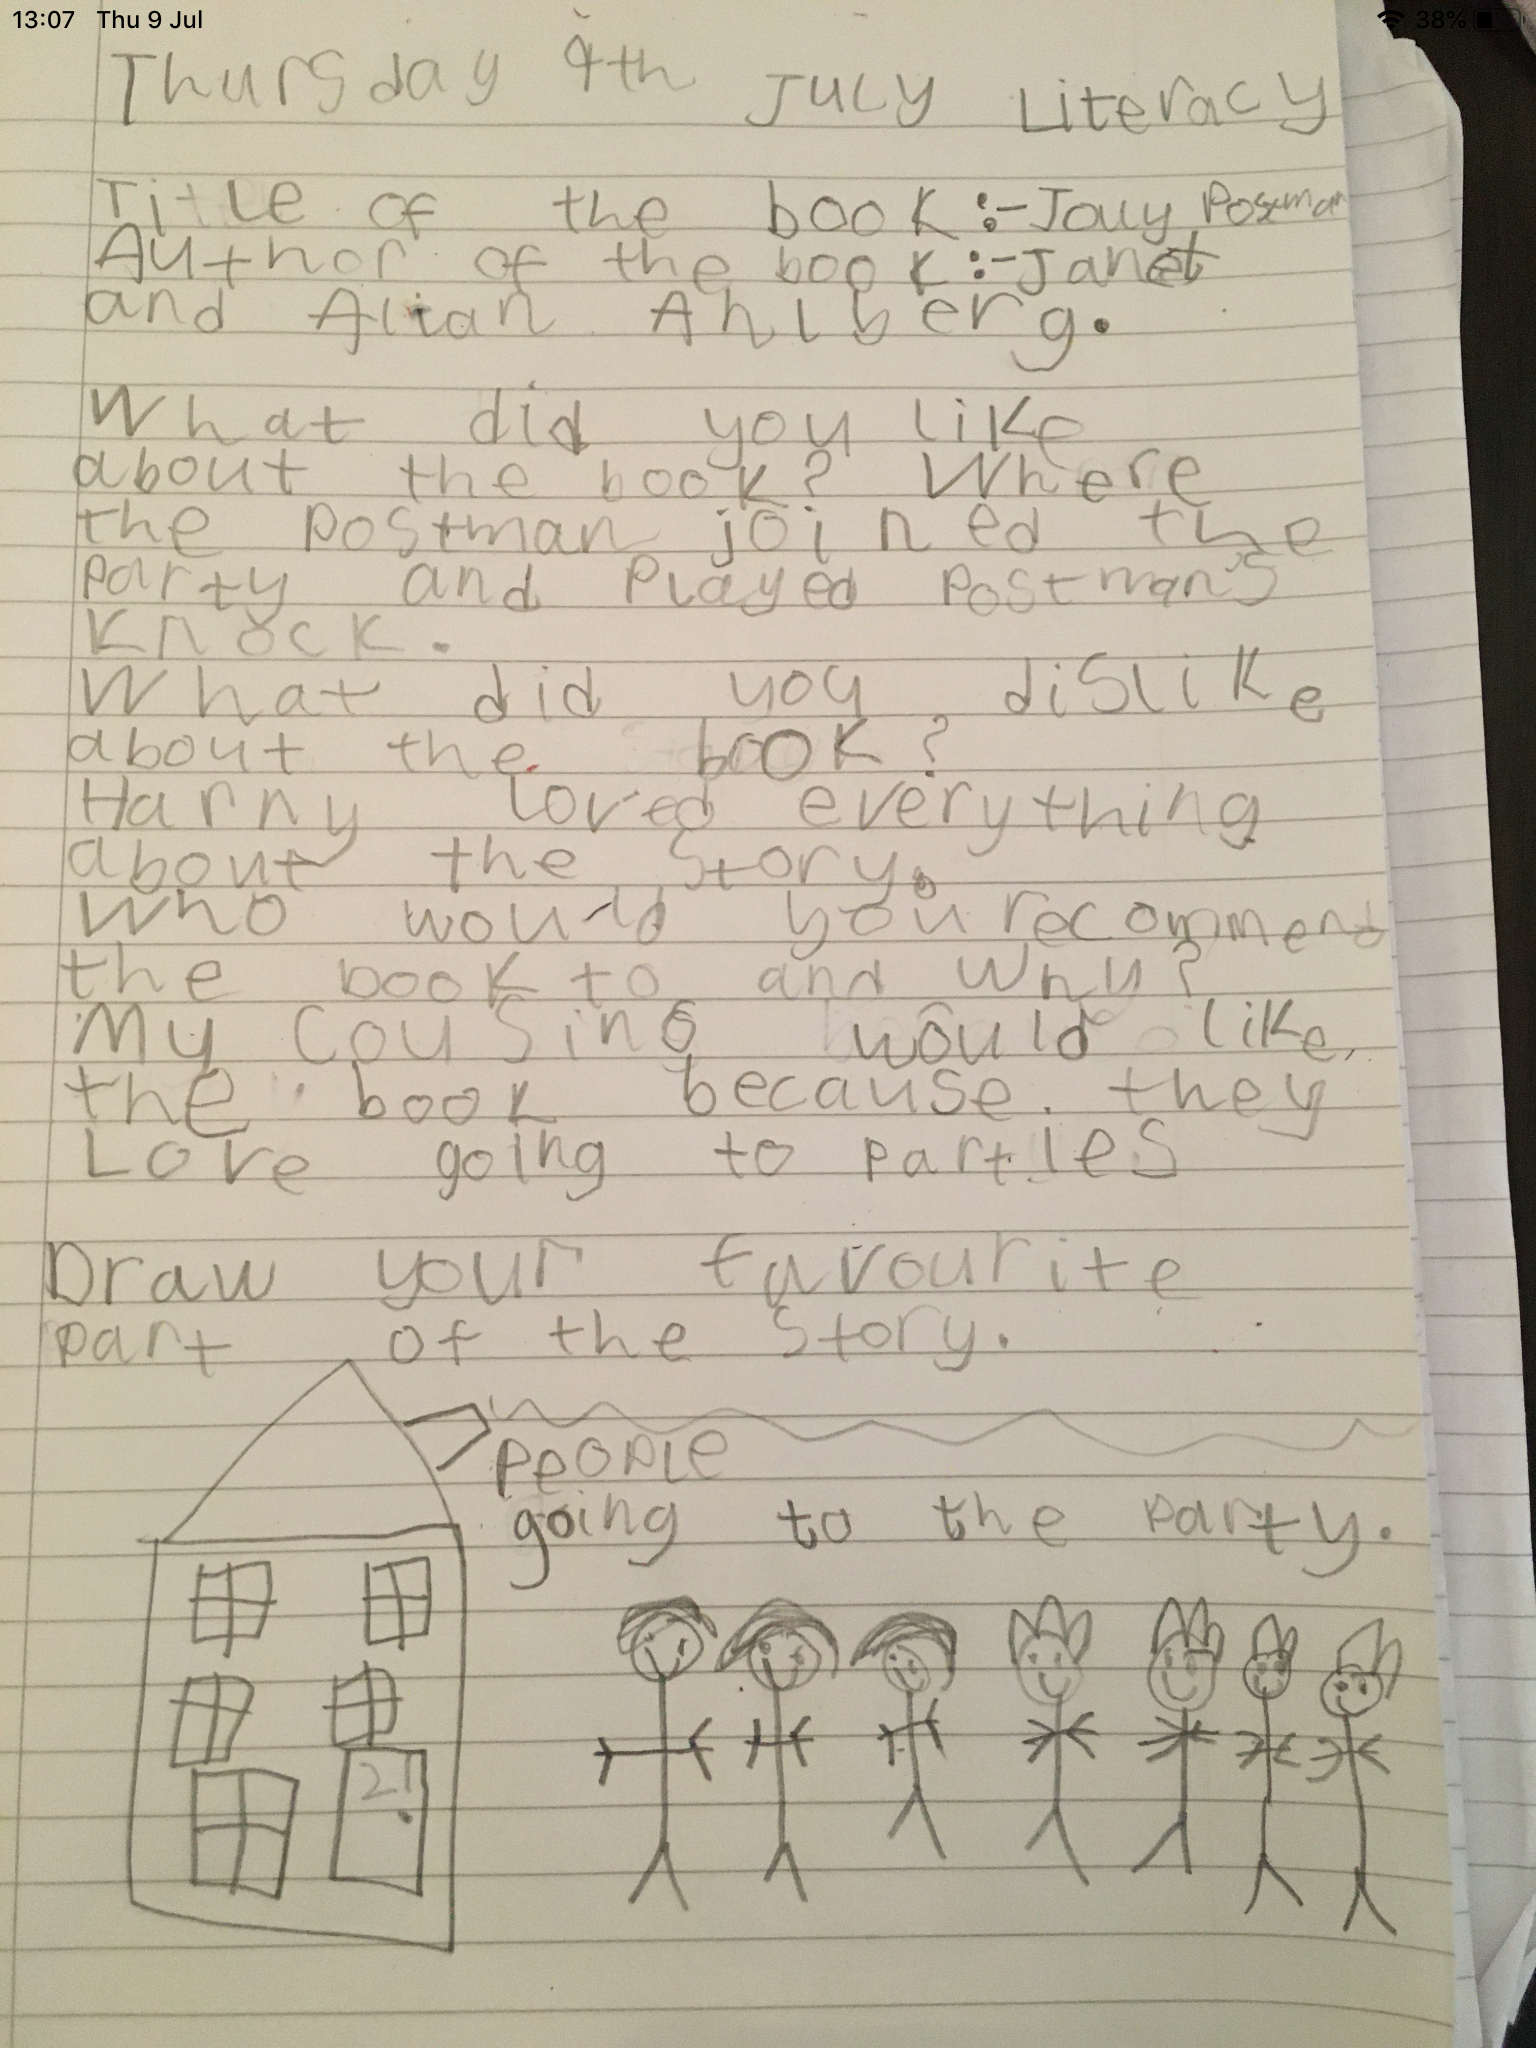 13:07 Thu 9 Jul 38%
Thursday 9th July Literacy
Title of the book:-Jolly Postman
Author of the book:-Janet
and Allan Ahlberg.
What did you like
about the book? Where
the postman joined the
party and played postman's
knock.
What did you dislike
about the book?
Harry loved everything
about the story.
Who would you recommend
the book to and why?
My cousins would like
the book because they
Love going to parties
Draw your favourite
part of the story.
people
going to the party.
21